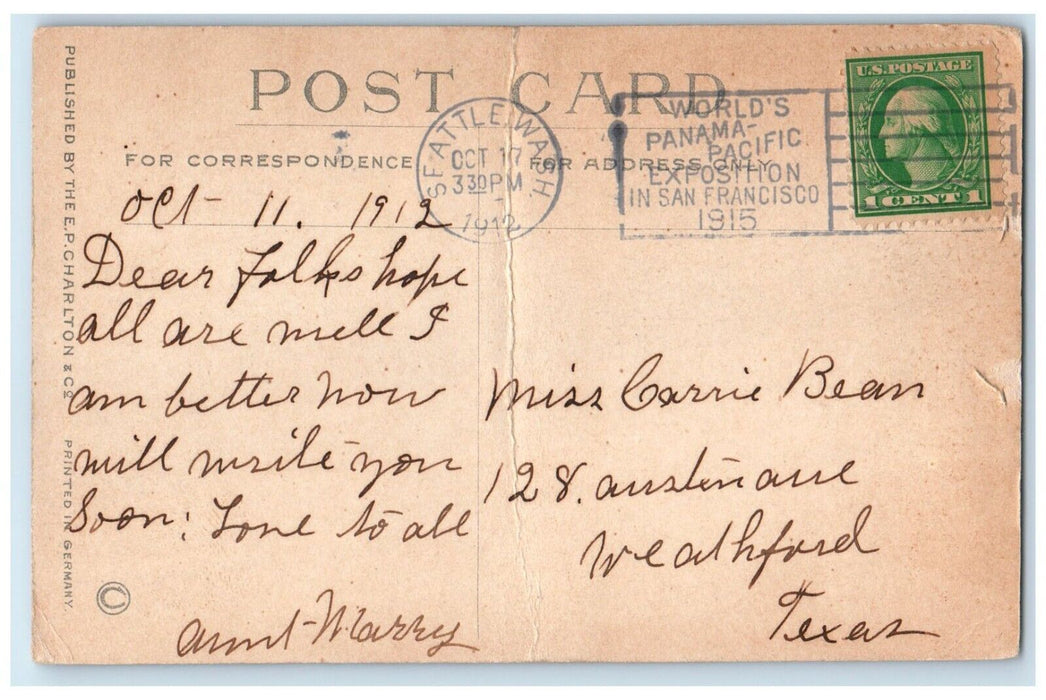 POST CARD
FOR CORRESPONDENCE
FOR ADDRESS ONLY
SEATTLE, WASH.
OCT 17
3 30 PM
1912
WORLD'S
PANAMA-
PACIFIC
EXPOSITION
IN SAN FRANCISCO
1915
U.S. POSTAGE
1 CENT 1
Oct 11. 1912
Dear folks hope
all are well I
am better now
will write you
soon: Love to all
aunt Marry
Miss Carrie Bean
128. austin ave
Weathford
Texas
PUBLISHED BY THE E.P. CHARLTON & CO.
PRINTED IN GERMANY.
©